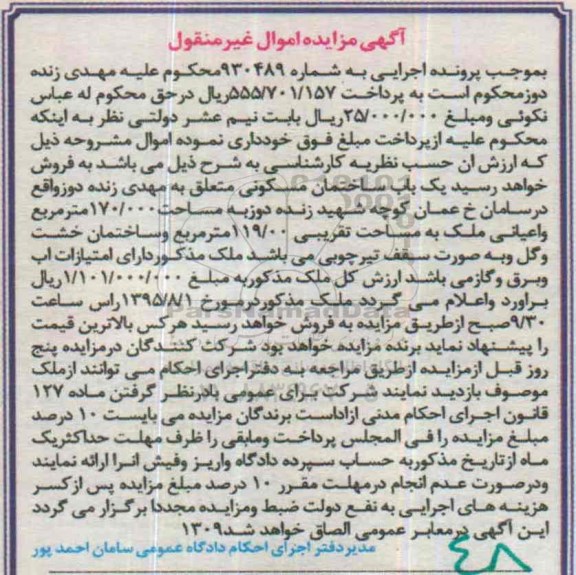 آگهی مزایده اموال غیر منقول
بموجب پرونده اجرایی به شماره ۹۳۰۴۸۹محکوم علیه مهدی زنده
دوزمحکوم است به پرداخت ۵۵۵/۷۰۱/۱۵۷ریال درحق محکوم له عباس
نکوئی ومبلغ ۲۵/۰۰۰/۰۰۰ریال بابت نیم عشر دولتی نظر به اینکه
محکوم علیه ازپرداخت مبلغ فوق خودداری نموده اموال مشروحه ذیل
که ارزش ان حسب نظریه کارشناسی به شرح ذیل می باشد به فروش
خواهد رسید یک باب ساختمان مسکونی متعلق به مهدی زنده دوزواقع
درسامان خ عمان کوچه شهید زنده دوزبه مساحت۱۷۰/۰۰۰مترمربع
واعیانی ملک به مساحت تقریبی ۱۱۹/۰۰مترمربع وساختمان خشت
وگل وبه صورت سقف تیرچوبی می باشد ملک مذکوردارای امتیازات اب
وبرق وگازمی باشد ارزش کل ملک مذکوربه مبلغ ۱/۱۰۱/۰۰۰/۰۰۰ریال
براورد واعلام می گردد ملک مذکوردرمورخ ۱۳۹۵/۸/۱راس ساعت
۹/۳۰صبح ازطریق مزایده به فروش خواهد رسید هرکس بالاترین قیمت
را پیشنهاد نماید برنده مزایده خواهد بود شرکت کنندگان درمزایده پنج
روز قبل ازمزایده ازطریق مراجعه به دفتراجرای احکام می توانند ازملک
موصوف بازدید نمایند شرکت برای عمومی بادرنظر گرفتن ماده ۱۲۷
قانون اجرای احکام مدنی ازاداست برندگان مزایده می بایست ۱۰ درصد
مبلغ مزایده را فی المجلس پرداخت ومابقی را ظرف مهلت حداکثریک
ماه ازتاریخ مذکوربه حساب سپرده دادگاه واریز وفیش انرا ارائه نمایند
ودرصورت عدم انجام درمهلت مقرر ۱۰ درصد مبلغ مزایده پس ازکسر
هزینه های اجرایی به نفع دولت ضبط ومزایده مجددا برگزار می گردد
این آگهی درمعابر عمومی الصاق خواهد شد۱۳۰۹
مدیردفتر اجرای احکام دادگاه عمومی سامان احمد پور
۴۸
ParsNamadData